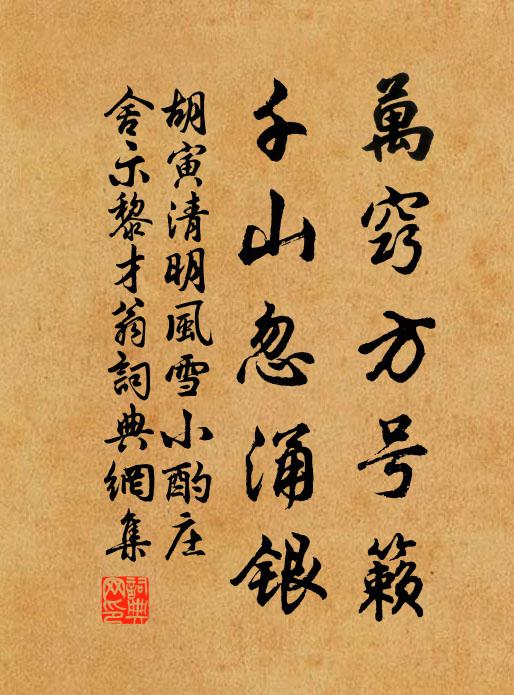 萬竅方号籟
千山忽涌銀
胡寅清明風雪小酌庄
舍示黎才翁詞典網集
詞典网印